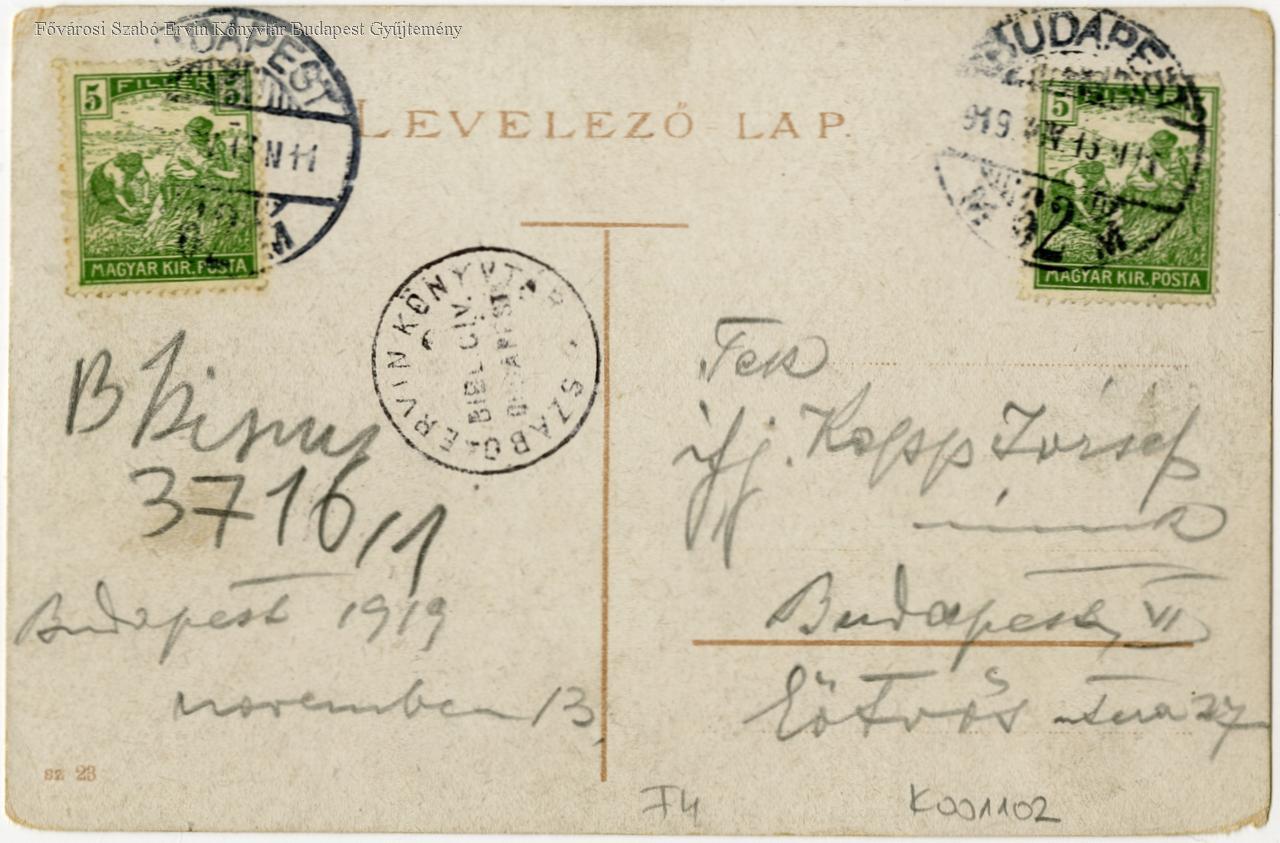 Fővárosi Szabó Ervin Könyvtár Budapest Gyűjtemény
BUDAPEST
13 N 11
5 FILLÉR 5
MAGYAR KIR. POSTA
LEVELEZŐ-LAP.
BUDAPEST
919 13 N 11
5
MAGYAR KIR. POSTA
SZABÓ ERVIN KÖNYVTÁR
BIBL. CIV.
BUDAPEST
B
3716/1
Budapest 1919
november 13.
sz 23
Tek
ifj. Kopp József
úrnak
Budapest, VI
Eötvös utca 27
T4
K001102